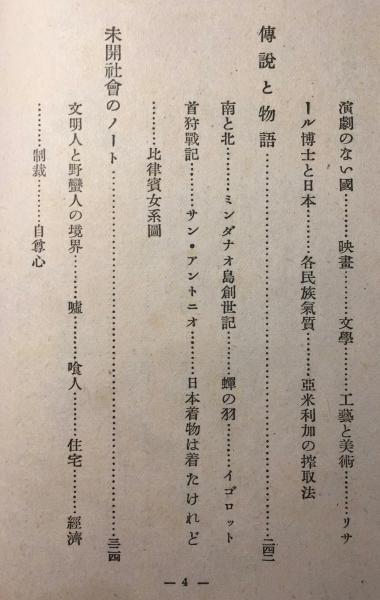 演劇のない國………映畫………文學………工藝と美術………リサ
ール博士と日本………各民族氣質………亞米利加の搾取法
傳說と物語………二四二
南と北………ミンダナオ島創世記………蟬の羽………イゴロット
首狩戰記………サン・アントニオ………日本着物は着たけれど
………比律賓女系圖
未開社會のノート………三二四
文明人と野蠻人の境界………嘘………喰人………住宅………經濟
………制裁………自尊心
— 4 —